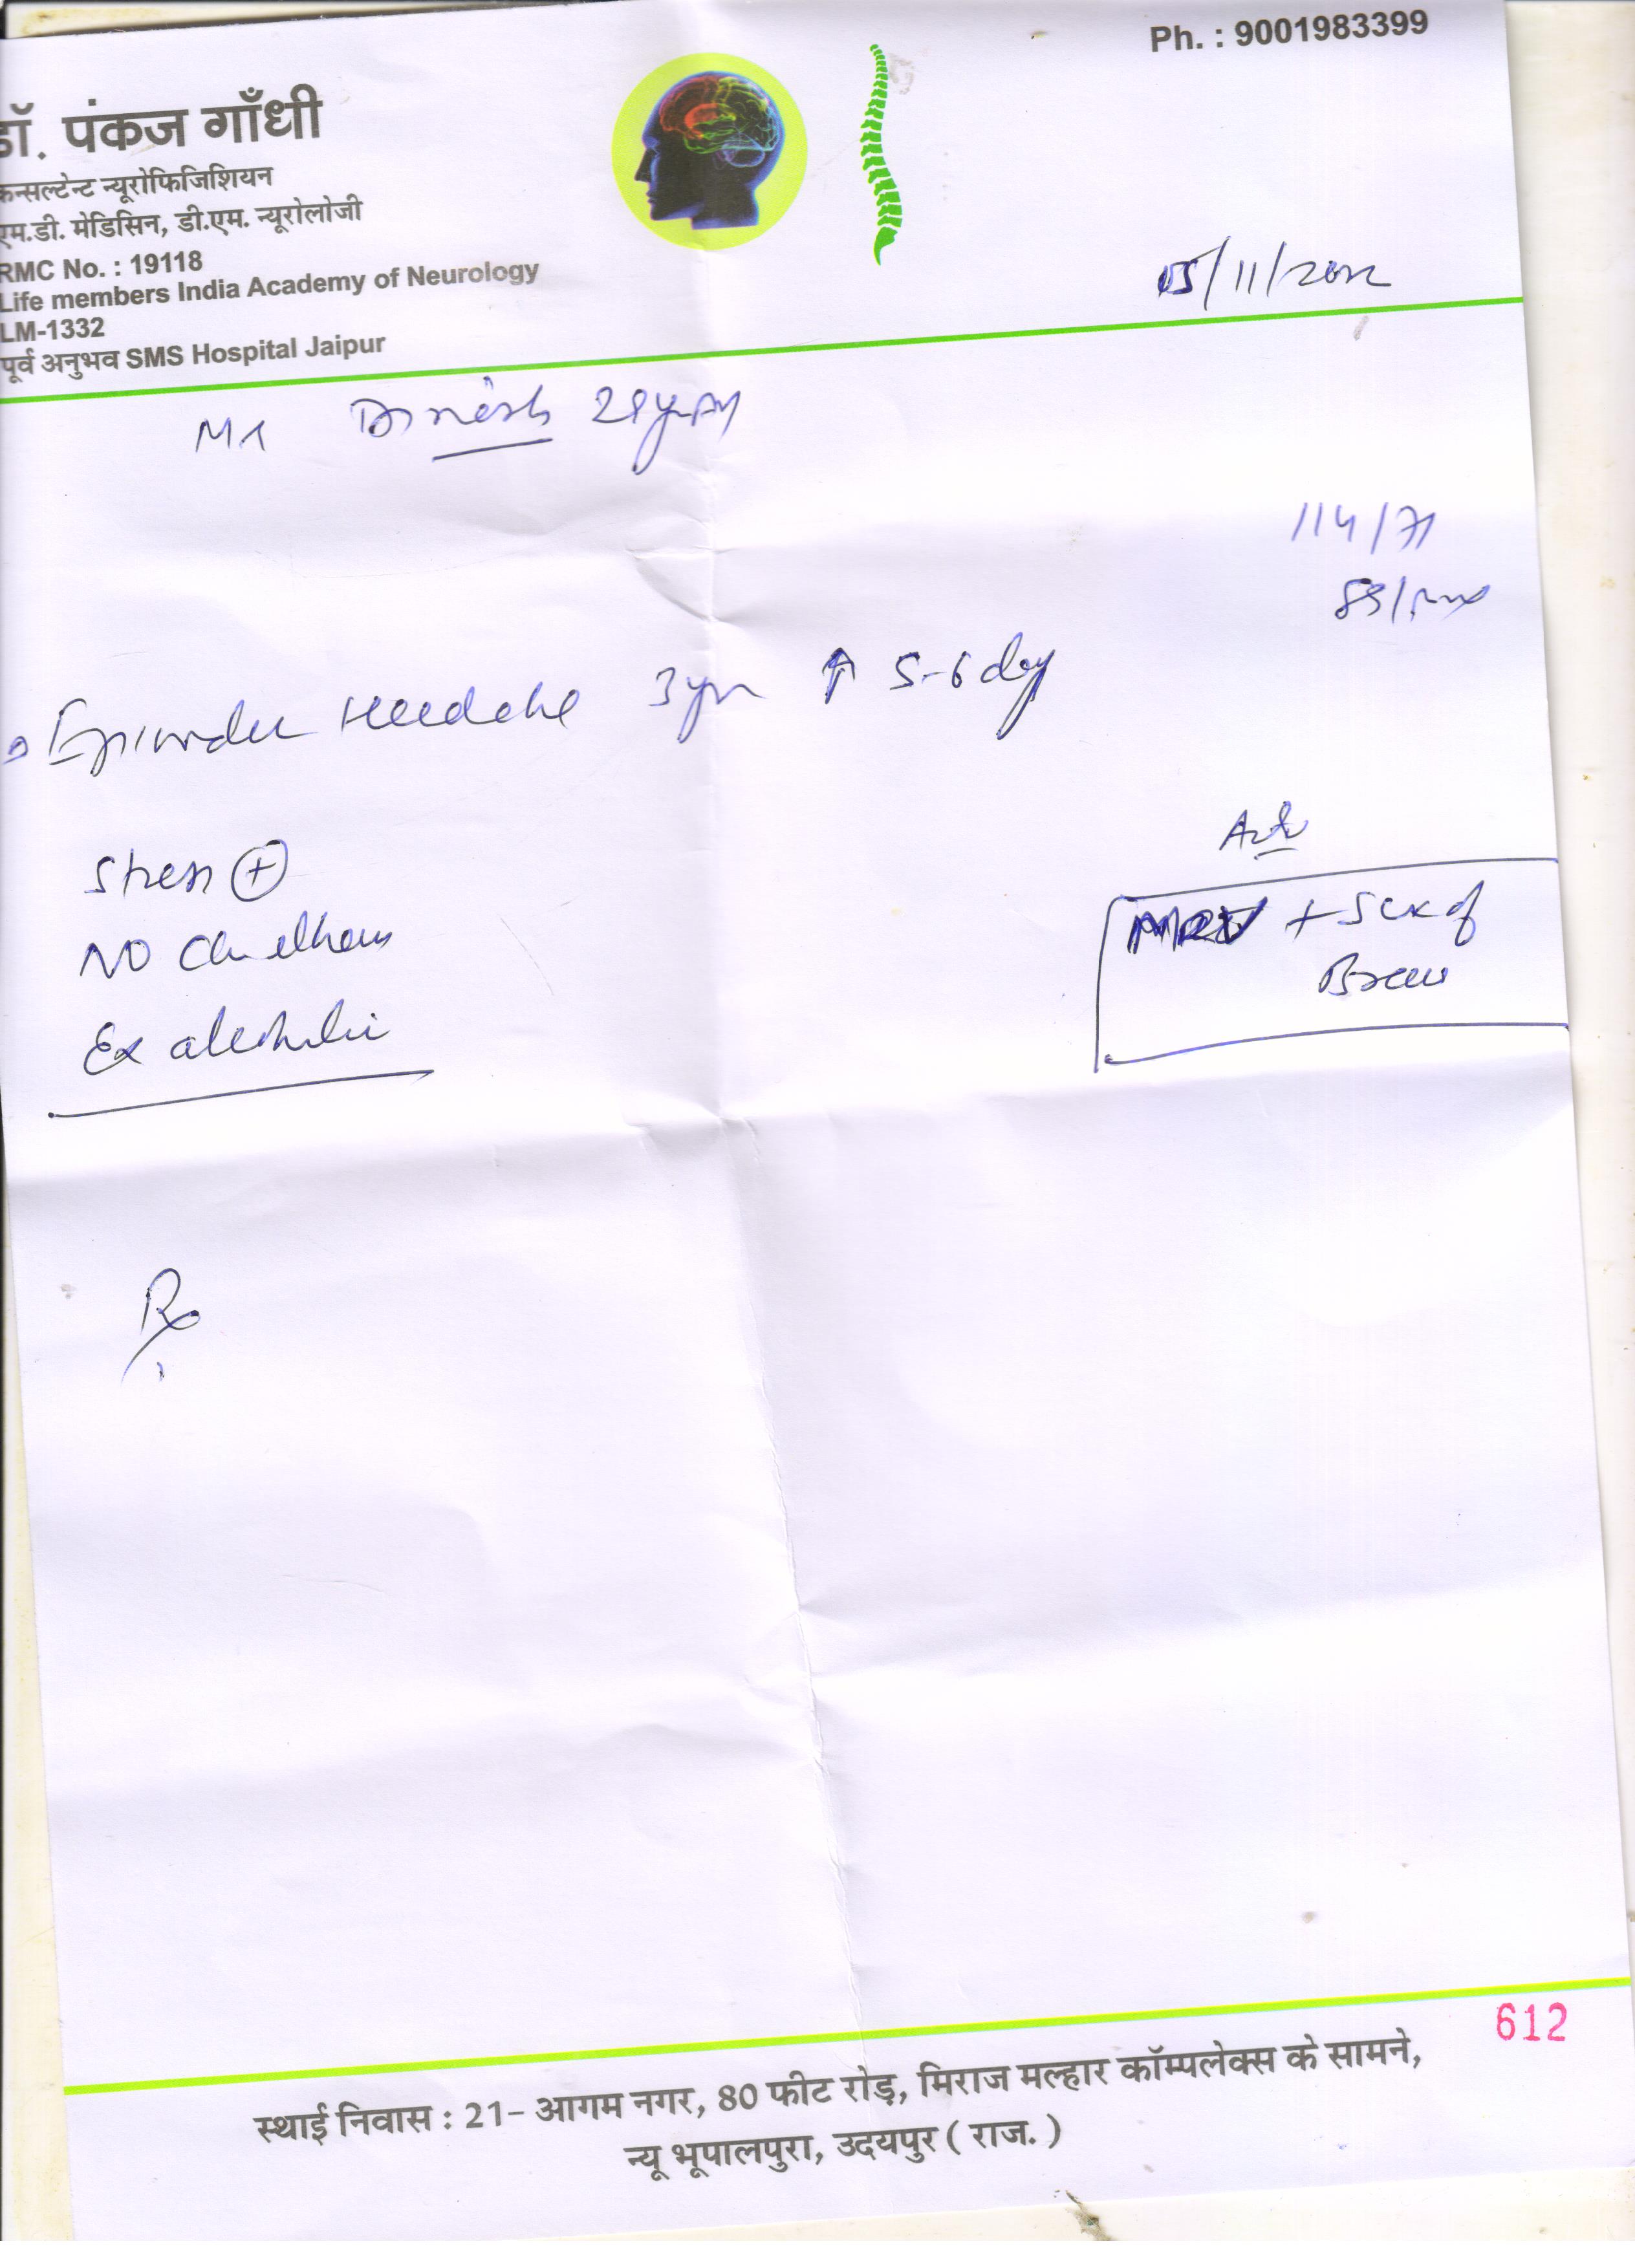 Ph. : 9001983399
डॉ. पंकज गाँधी
कन्सल्टेन्ट न्यूरोफिजिशियन
एम.डी. मेडिसिन, डी.एम. न्यूरोलोजी
RMC No. : 19118
Life members India Academy of Neurology
LM-1332
पूर्व अनुभव SMS Hospital Jaipur
/11/
Mr Dinesh
114/71
/min
Headache 3yr ↑ 5-6 day
Stress +
NO
Ex alcoholic
Adv
+ Screen of
Brain
Rx
612
स्थाई निवास : 21- आगम नगर, 80 फीट रोड़, मिराज मल्हार कॉम्पलेक्स के सामने,
न्यू भूपालपुरा, उदयपुर ( राज. )